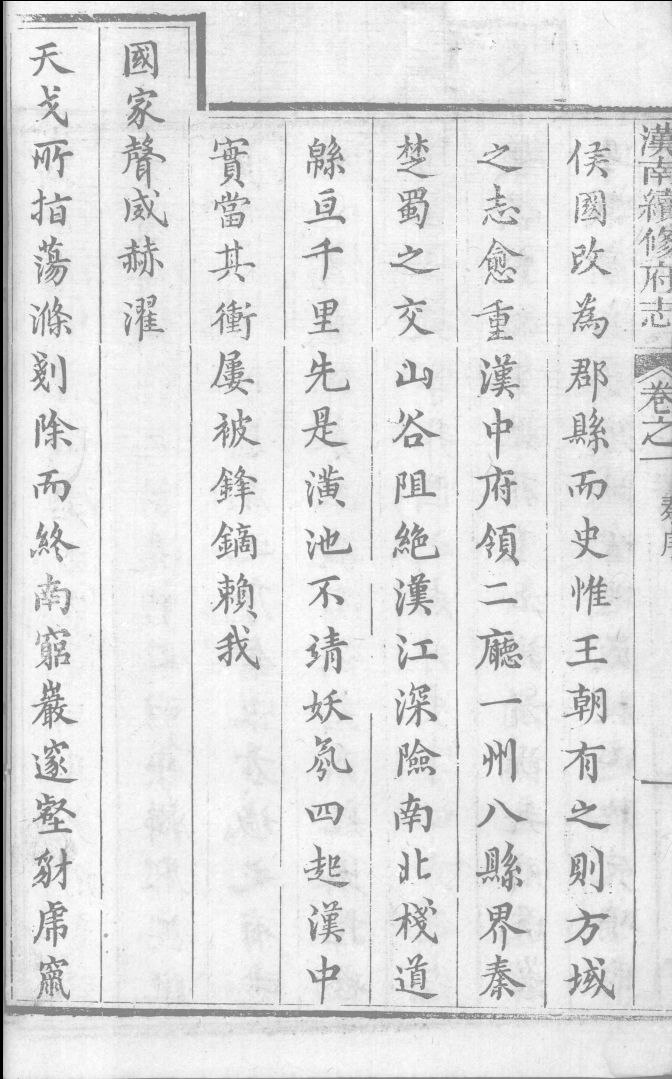 漢南續修府志 卷之一 序
侯國改為郡縣而史惟王朝有之則方域
之志愈重漢中府領二廳一州八縣界秦
楚蜀之交山谷阻絶漢江深險南北棧道
緜亘千里先是潢池不靖妖氛四起漢中
實當其衝屢被鋒鏑賴我
國家聲威赫濯
天戈所指蕩滌剗除而終南窮巖邃壑豺虎竄